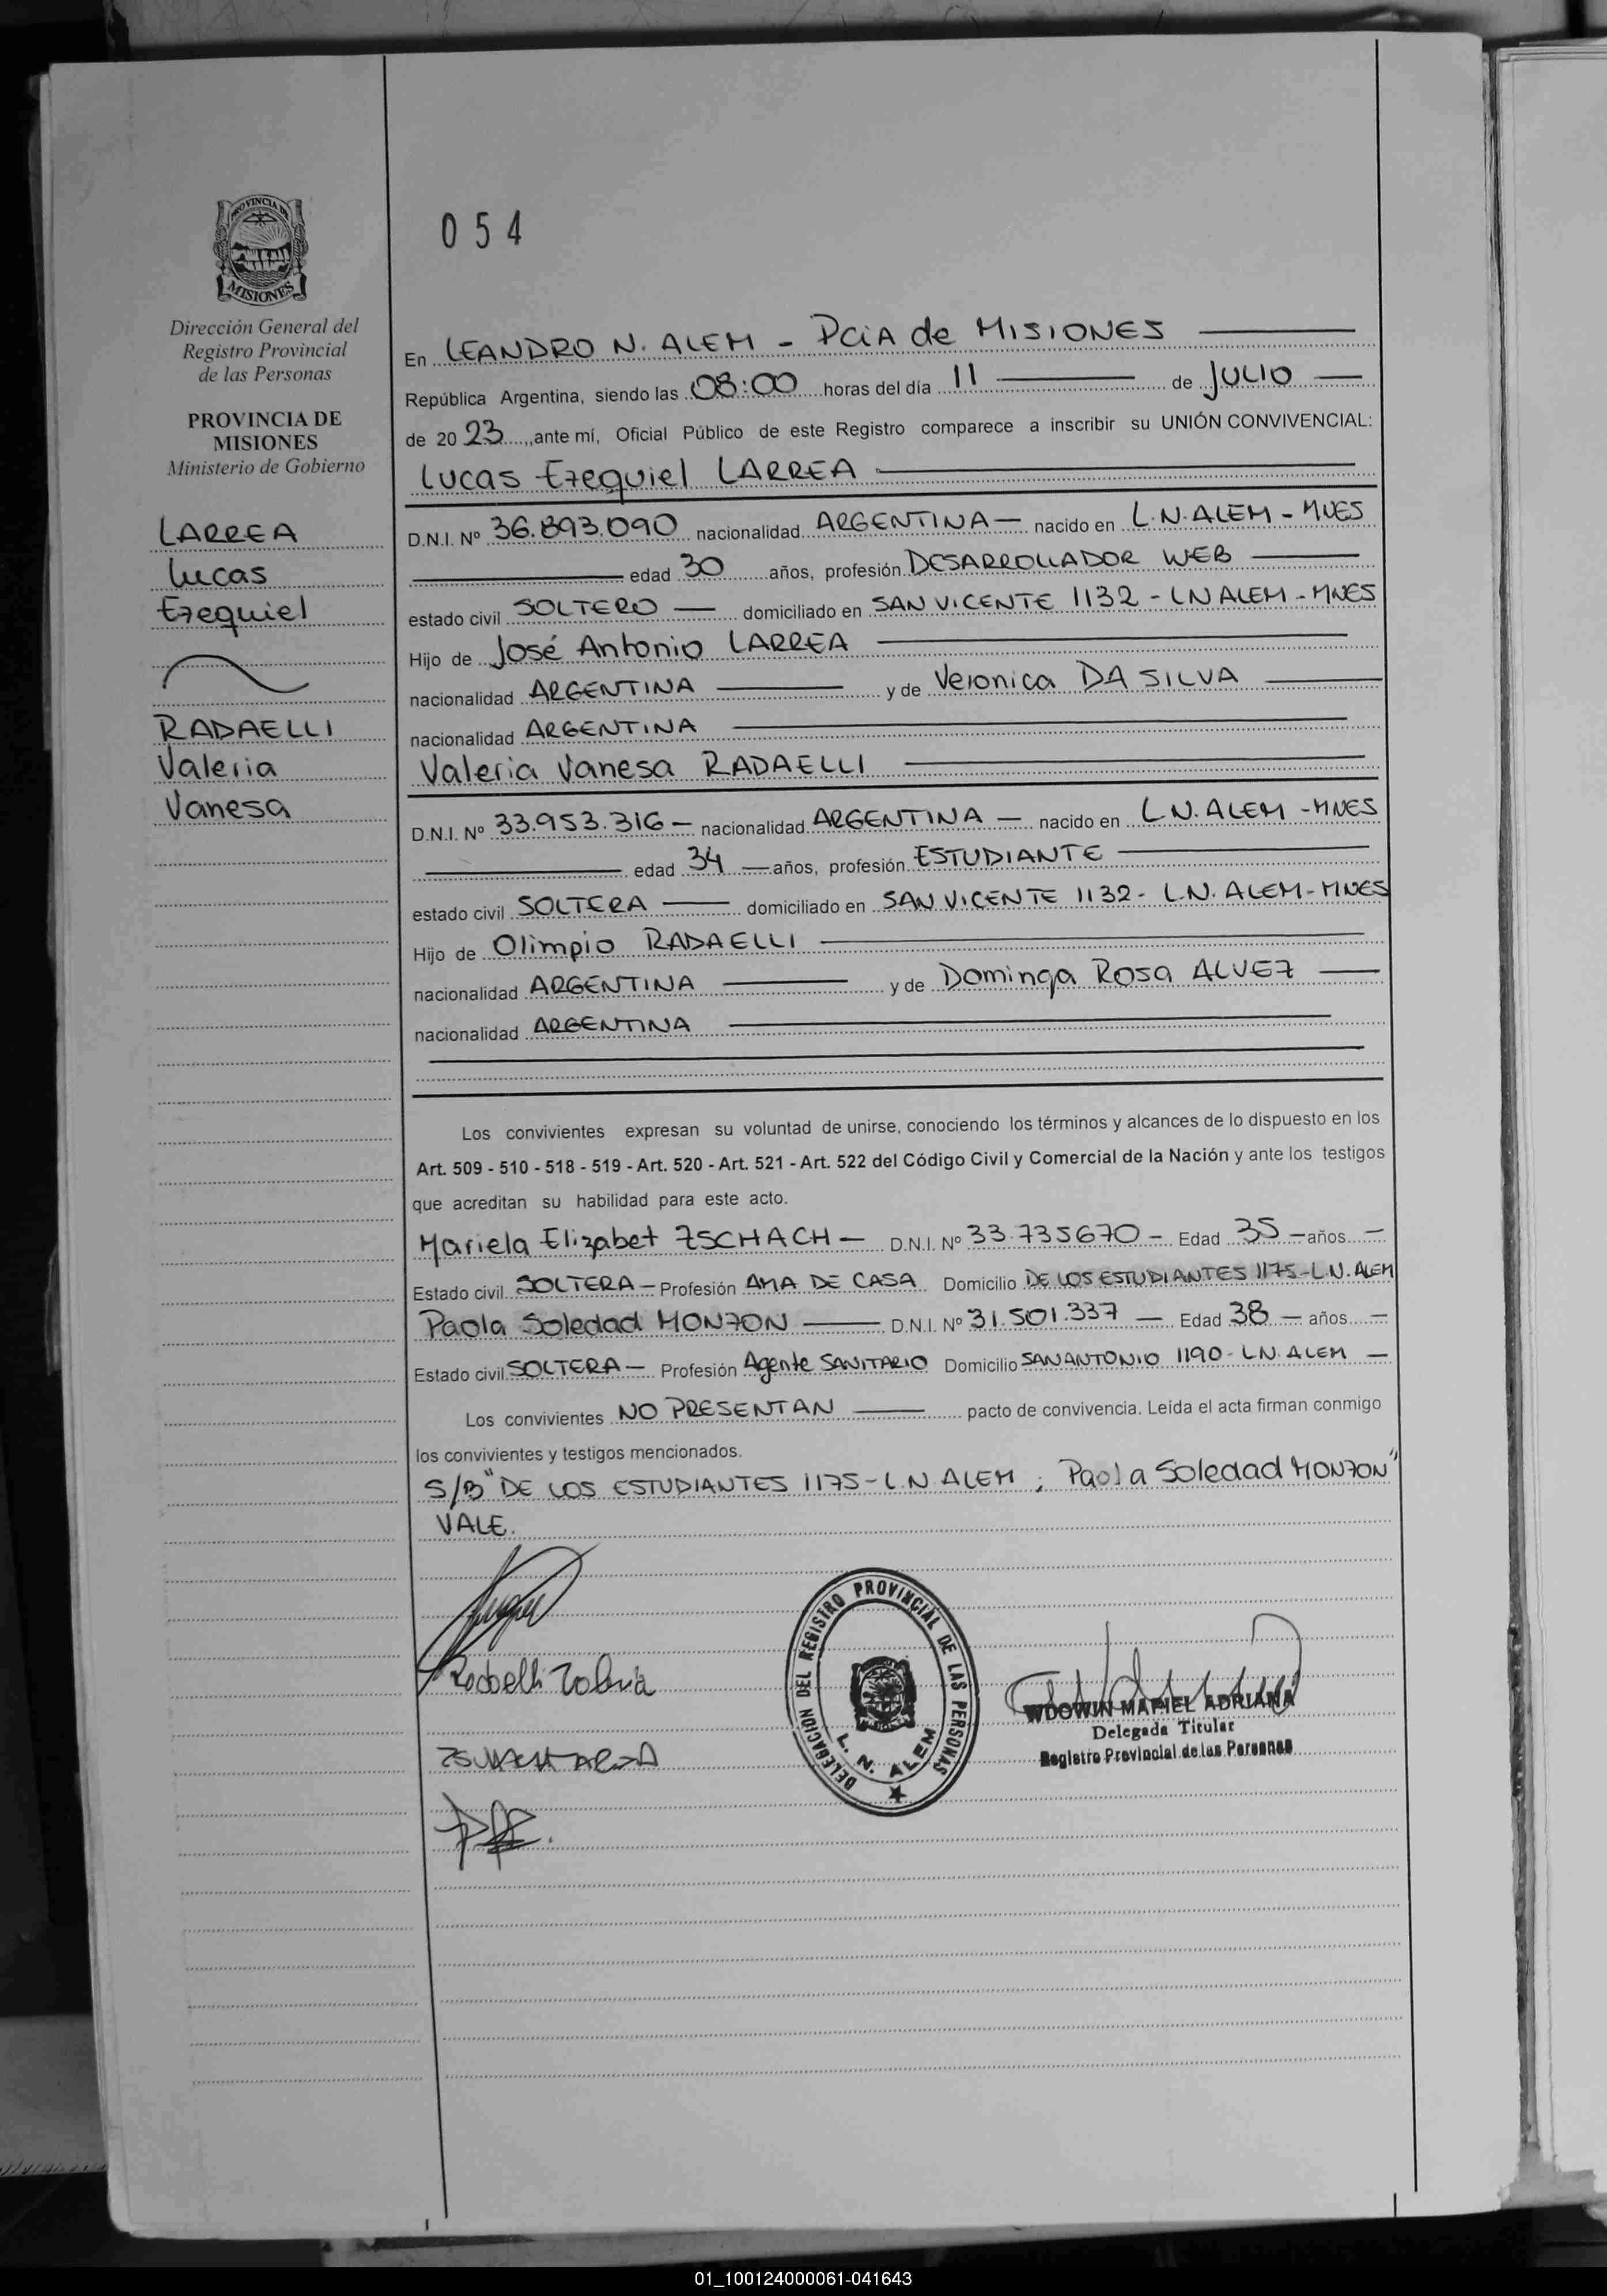 PROVINCIA DE
MISIONES
Dirección General del
Registro Provincial
de las Personas
PROVINCIA DE
MISIONES
Ministerio de Gobierno
LARREA
Lucas
Ezequiel
RADAELLI
Valeria
Vanesa
054
En LEANDRO N. ALEM - PciA de MISIONES
República Argentina, siendo las 08:00 horas del día 11 de JULIO
de 20 23 ,ante mí, Oficial Público de este Registro comparece a inscribir su UNIÓN CONVIVENCIAL:
Lucas Ezequiel LARREA
D.N.I. Nº 36.893.090 nacionalidad ARGENTINA - nacido en L.N.ALEM - MNES
edad 30 años, profesión DESARROLLADOR WEB
estado civil SOLTERO domiciliado en SAN VICENTE 1132 - LN ALEM - MNES
Hijo de José Antonio LARREA
nacionalidad ARGENTINA y de Veronica DA SILVA
nacionalidad ARGENTINA
Valeria Vanesa RADAELLI
D.N.I. Nº 33.953.316 - nacionalidad ARGENTINA - nacido en L.N. ALEM - MNES
edad 34 años, profesión ESTUDIANTE
estado civil SOLTERA domiciliado en SAN VICENTE 1132 - L.N. ALEM - MNES
Hijo de Olimpio RADAELLI
nacionalidad ARGENTINA y de Dominga Rosa ALVEZ
nacionalidad ARGENTINA
Los convivientes expresan su voluntad de unirse, conociendo los términos y alcances de lo dispuesto en los
Art. 509 - 510 - 518 - 519 - Art. 520 - Art. 521 - Art. 522 del Código Civil y Comercial de la Nación y ante los testigos
que acreditan su habilidad para este acto.
Mariela Elizabet ZSCHACH - D.N.I. Nº 33.735670 - Edad 35 - años -
Estado civil SOLTERA - Profesión AMA DE CASA Domicilio DE LOS ESTUDIANTES 1175 - L.N. ALEM
Paola Soledad MONZON D.N.I. Nº 31.501.337 - Edad 38 - años -
Estado civil SOLTERA - Profesión Agente SANITARIO Domicilio SAN ANTONIO 1190 - LN. ALEM -
Los convivientes NO PRESENTAN pacto de convivencia. Leída el acta firman conmigo
los convivientes y testigos mencionados.
S/B "DE LOS ESTUDIANTES 1175 - L.N. ALEM ; Paola Soledad MONZON"
VALE.
Radaelli Valeria
DELEGACION DEL REGISTRO PROVINCIAL DE LAS PERSONAS
L. N. ALEM
WDOWIN MARIEL ADRIANA
Delegada Titular
Registro Provincial de las Personas
01_100124000061-041643